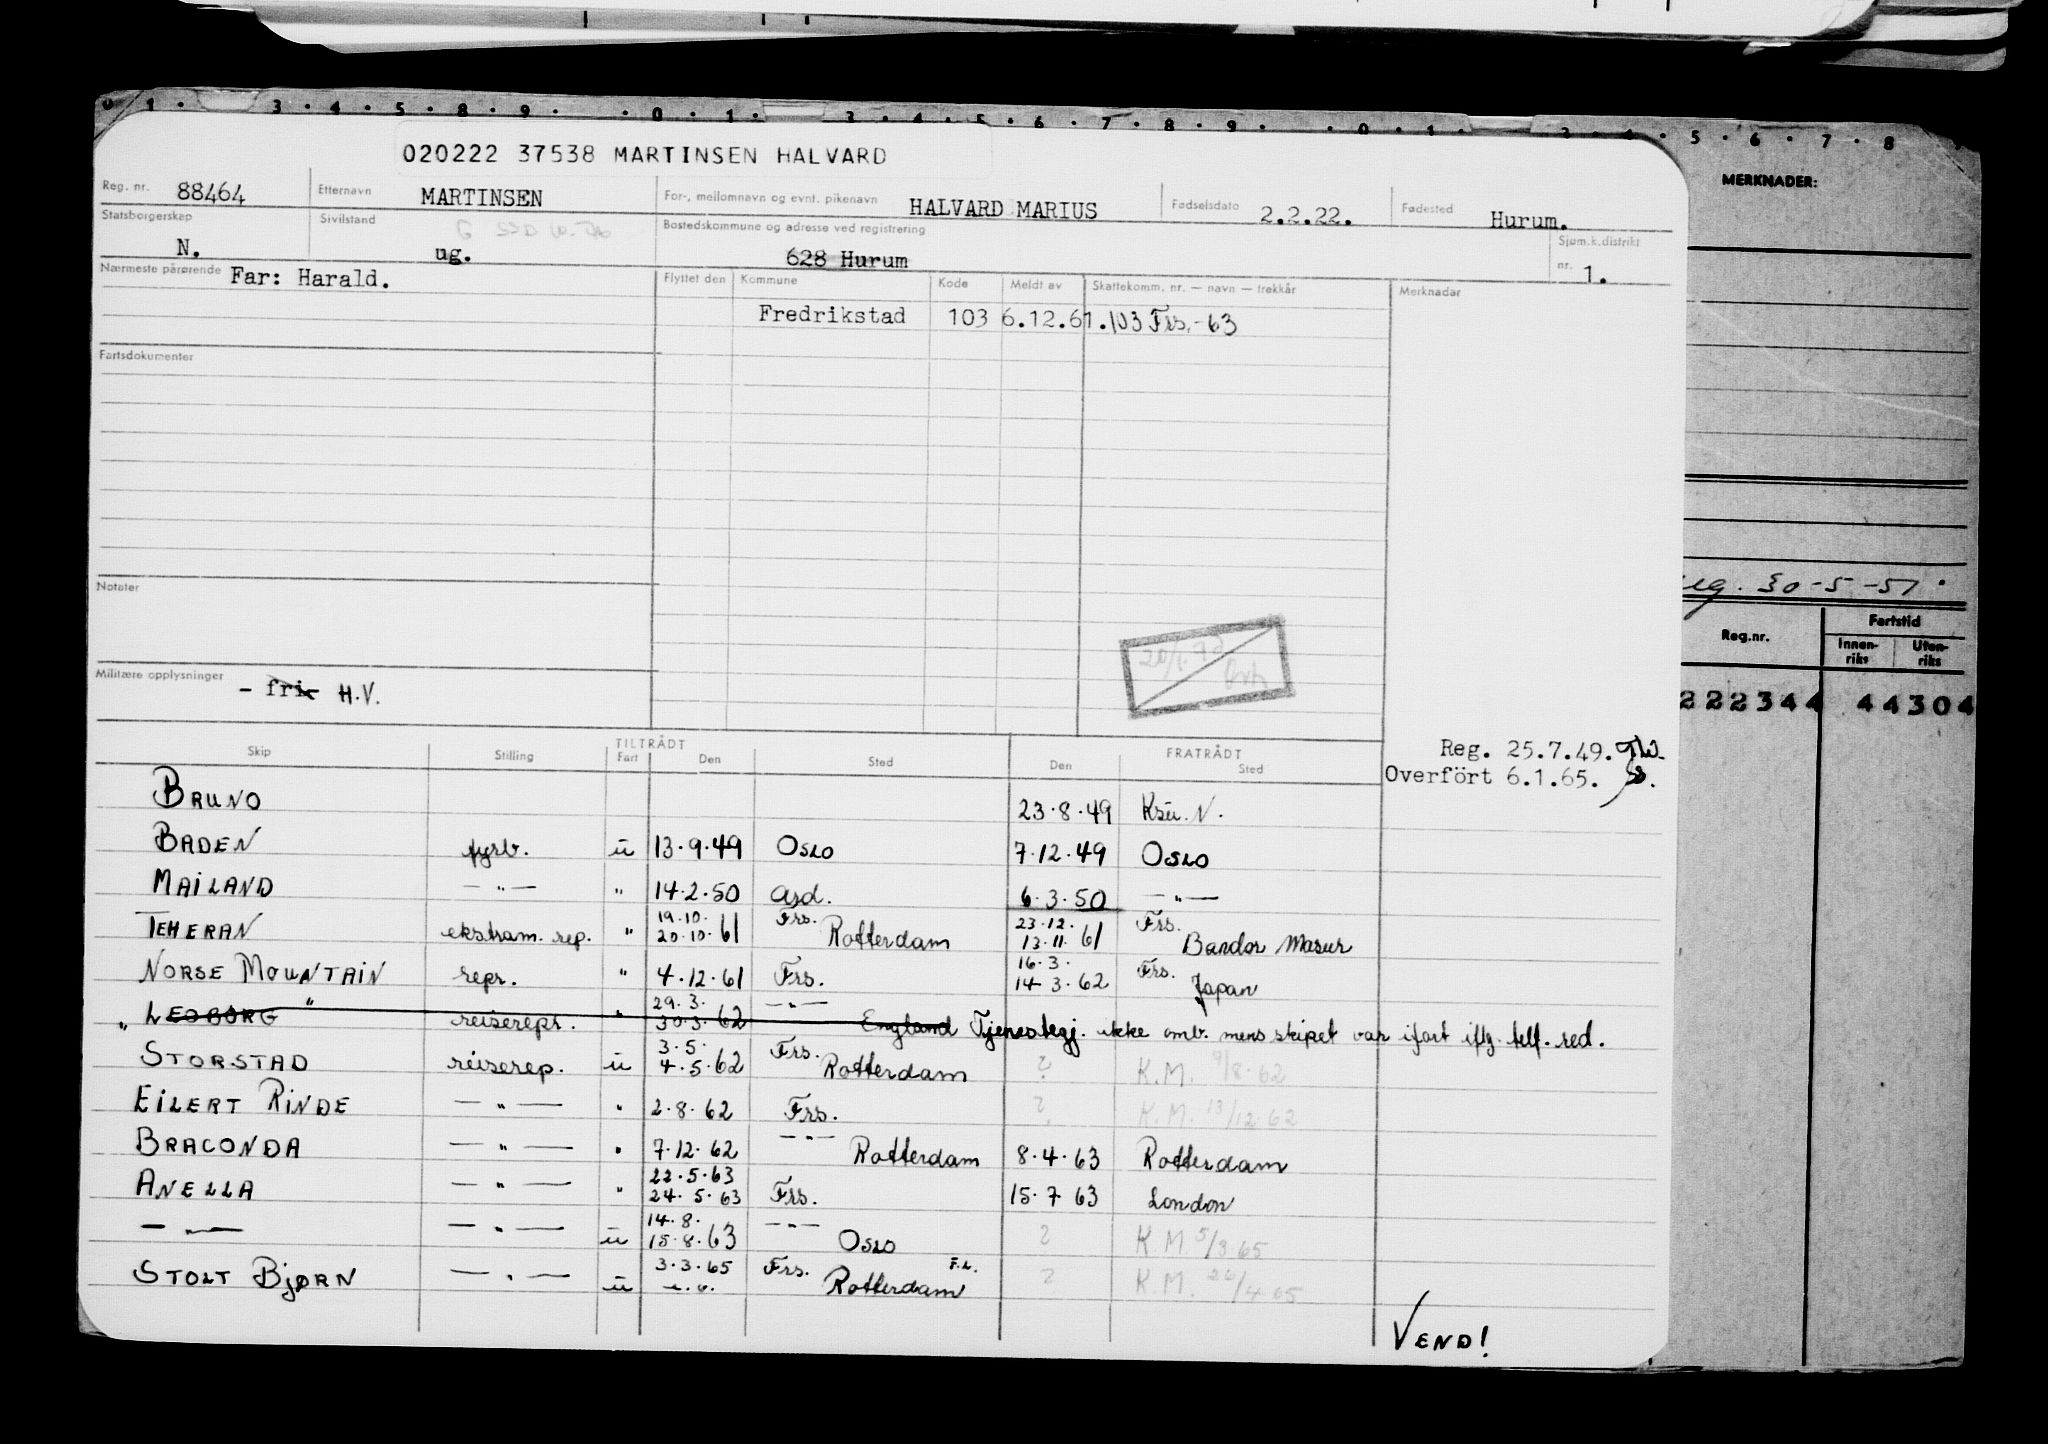 020222 37538 MARTINSEN HALVARD
Reg. nr. 88464 Etternavn MARTINSEN For-, mellomnavn og evnt. pikenavn HALVARD MARIUS Fødselsdato 2.2.22. Fødested Hurum.
Statsborgerskap N. Sivilstand ug. Bostedskommune og adresse ved registrering 628 Hurum Sjøm.k.distrikt nr. 1.
Nærmeste pårørende Far: Harald. Flyttet den Kommune Kode Meldt av Skattekomm. nr. — navn — trekkår Merknader
Fredrikstad 103 6.12.61. 103 Frs. -63
Fartsdokumenter
Notater
Militære opplysninger - fri- H.V.
Reg. 25.7.49.
Overfört 6.1.65.
TILTRÅDT FRATRÅDT
Skip Stilling Fart Den Sted Den Sted
BRUNO 23.8.49 Ksu. N.
BADEN fyrb. u 13.9.49 OSLO 7.12.49 OSLO
MAILAND — " — " 14.2.50 6.3.50 — " —
TEHERAN ekstram. rep. " 19.10. 20.10.61 Frs. Rotterdam 23.12. 13.11.61 Frs. Bandar Masur
NORSE MOUNTAIN repr. " 4.12.61 Frs. 16.3. 14.3.62 Frs. Japan
" LEOBORG " reiserepr. " 29.3. 30.3.62 — " — England Tjenestegj. ikke omb. mens skipet var i fart iflg. telf. red.
STORSTAD reiserep. u 3.5. 4.5.62 Frs. Rotterdam ? K.M. 9/8.62
EILERT RINDE — " — " 2.8.62 Frs. ? K.M. 13/12.62
BRACONDA — " — " 7.12.62 — " — Rotterdam 8.4.63 Rotterdam
ANELLA — " — " 22.5.63 24.5.63 Frs. 15.7.63 London
— " — — " — u 14.8. 15.8.63 — " — OSLO ? K.M. 5/3.65
STOLT BJØRN — " — u 3.3.65 Frs. Rotterdam F.L. ? K.M. 26/4.65
VEND!
MERKNADER:
30-5-51
Reg.nr. Fartstid
Innenriks Utenriks
222344 44304